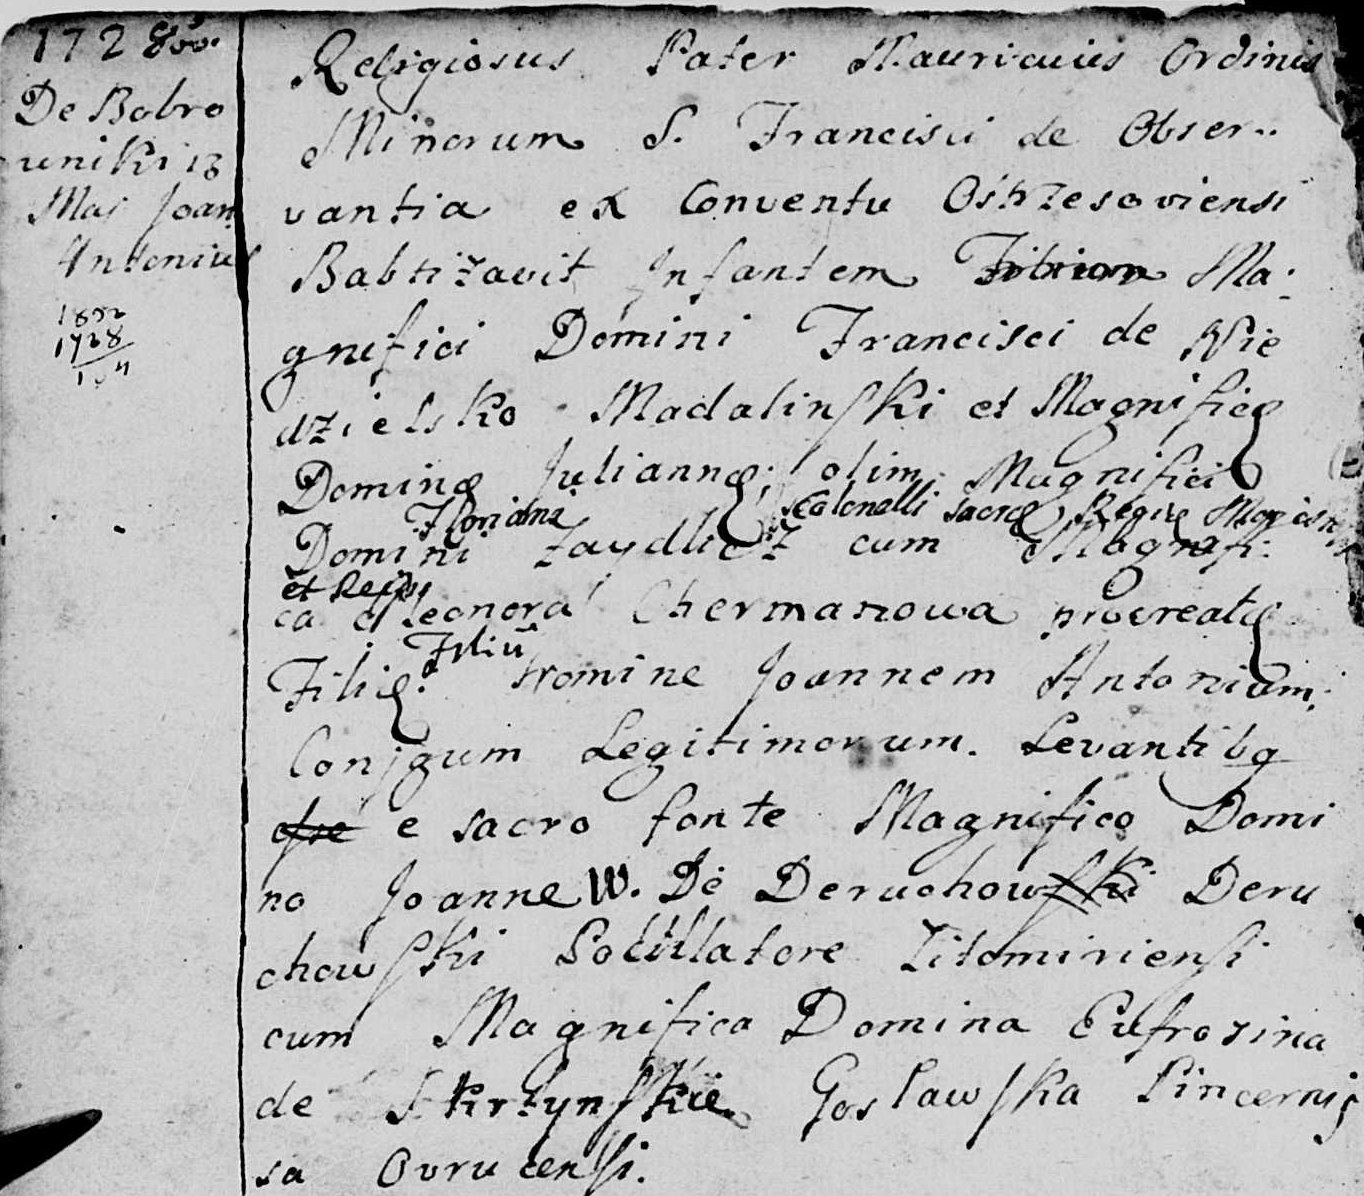 1728
De Bobro
wniki 13
Maj Joan
Antonius
1852
1728
Religiosus Pater Mauricius Ordinis
Minorum S. Francisci de Obser..
vantia ex Conventu Ostrzesoviensi
Babtizavit Infantem Ma:
gnifici Domini Francisci de Nie
dzielsko Madalinski et Magnificę
Dominę Juliannę; olim Magnifici
Floriani Colonelli Sacrę Regię
Domini Zaydlicz cum Magnifi:
et Reipu
ca Eleonora Chermanowa procreatę
Filiu
Filię. nomine Joannem Antonium.
Conjgum Legitimorum. Levantibq
e sacro fonte Magnifico Domi
no Joanne W. De Deruchowski Deru
chowski Pocillatore Zitomiriensi
cum Magnifica Domina Eufrozina
de Skrzynskie Goslawska Pincernis
sa Ovrucensi.